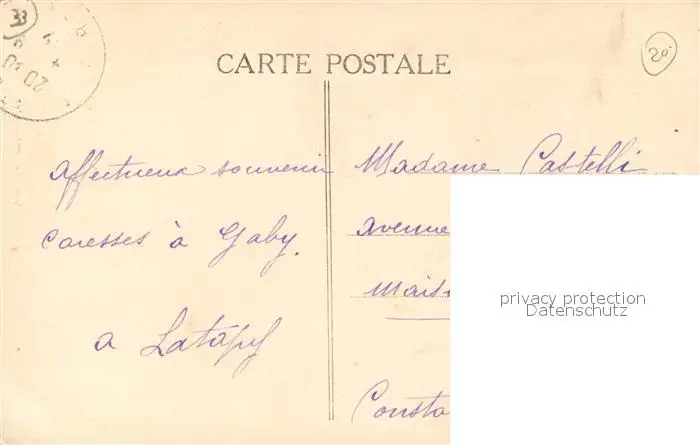 33
20
CARTE POSTALE
Affectueux souvenir
Caresses à Gaby.
a Latapy
Madame Castelli
Avenue
Mais
Consta
privacy protection
Datenschutz